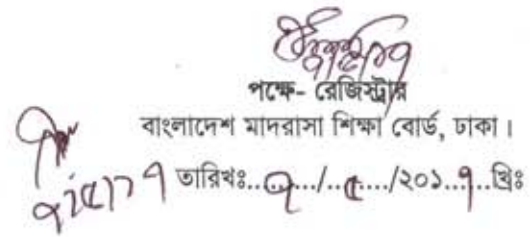 পক্ষে- রেজিস্ট্রার
বাংলাদেশ মাদরাসা শিক্ষা বোর্ড, ঢাকা।
৭/৫/১৭ তারিখঃ..৭.../..৫.../২০১..৭..খ্রিঃ